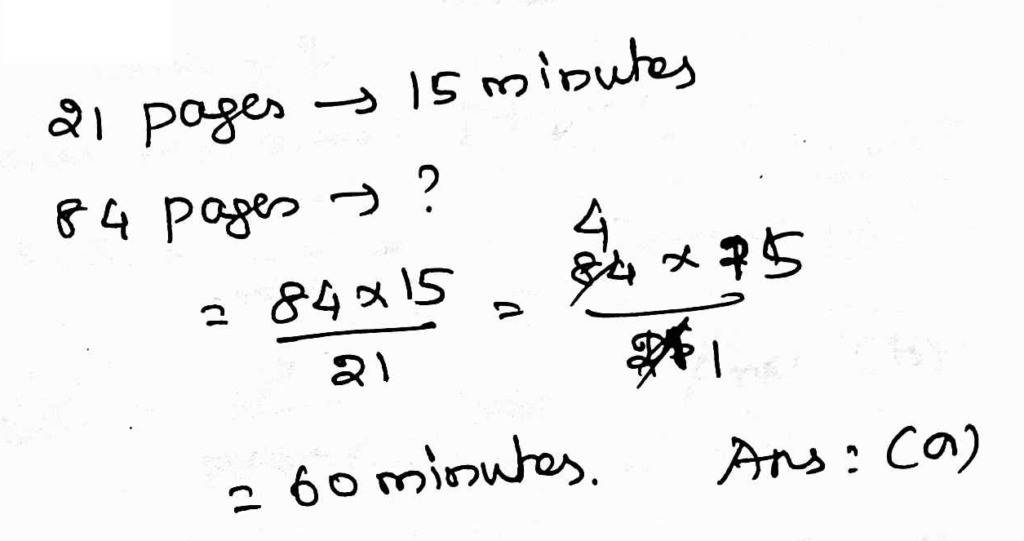 21 pages → 15 minutes
84 pages → ?
= 84 x 15 / 21 = 84 4 x 15 / 21 1
= 60 minutes. Ans : (a)